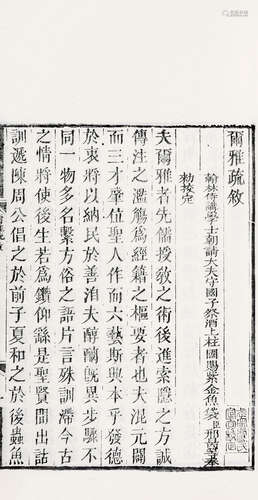 爾雅疏敘
翰林侍講學士朝請大夫守國子祭酒上柱國賜紫金魚袋臣邢昺等奉
勑校定
夫爾雅者先儒授教之術後進索隱之方誠
傳注之濫觴爲經籍之樞要者也夫混元闢
而三才肇位聖人作而六藝斯興本乎發德
於衷將以納民於善洎夫醇醨旣異步驟不
同一物多名繫方俗之語片言殊訓滯今古
之情將使後生若爲鑽仰繇是聖賢間出詁
訓遞陳周公倡之於前子夏和之於後蟲魚